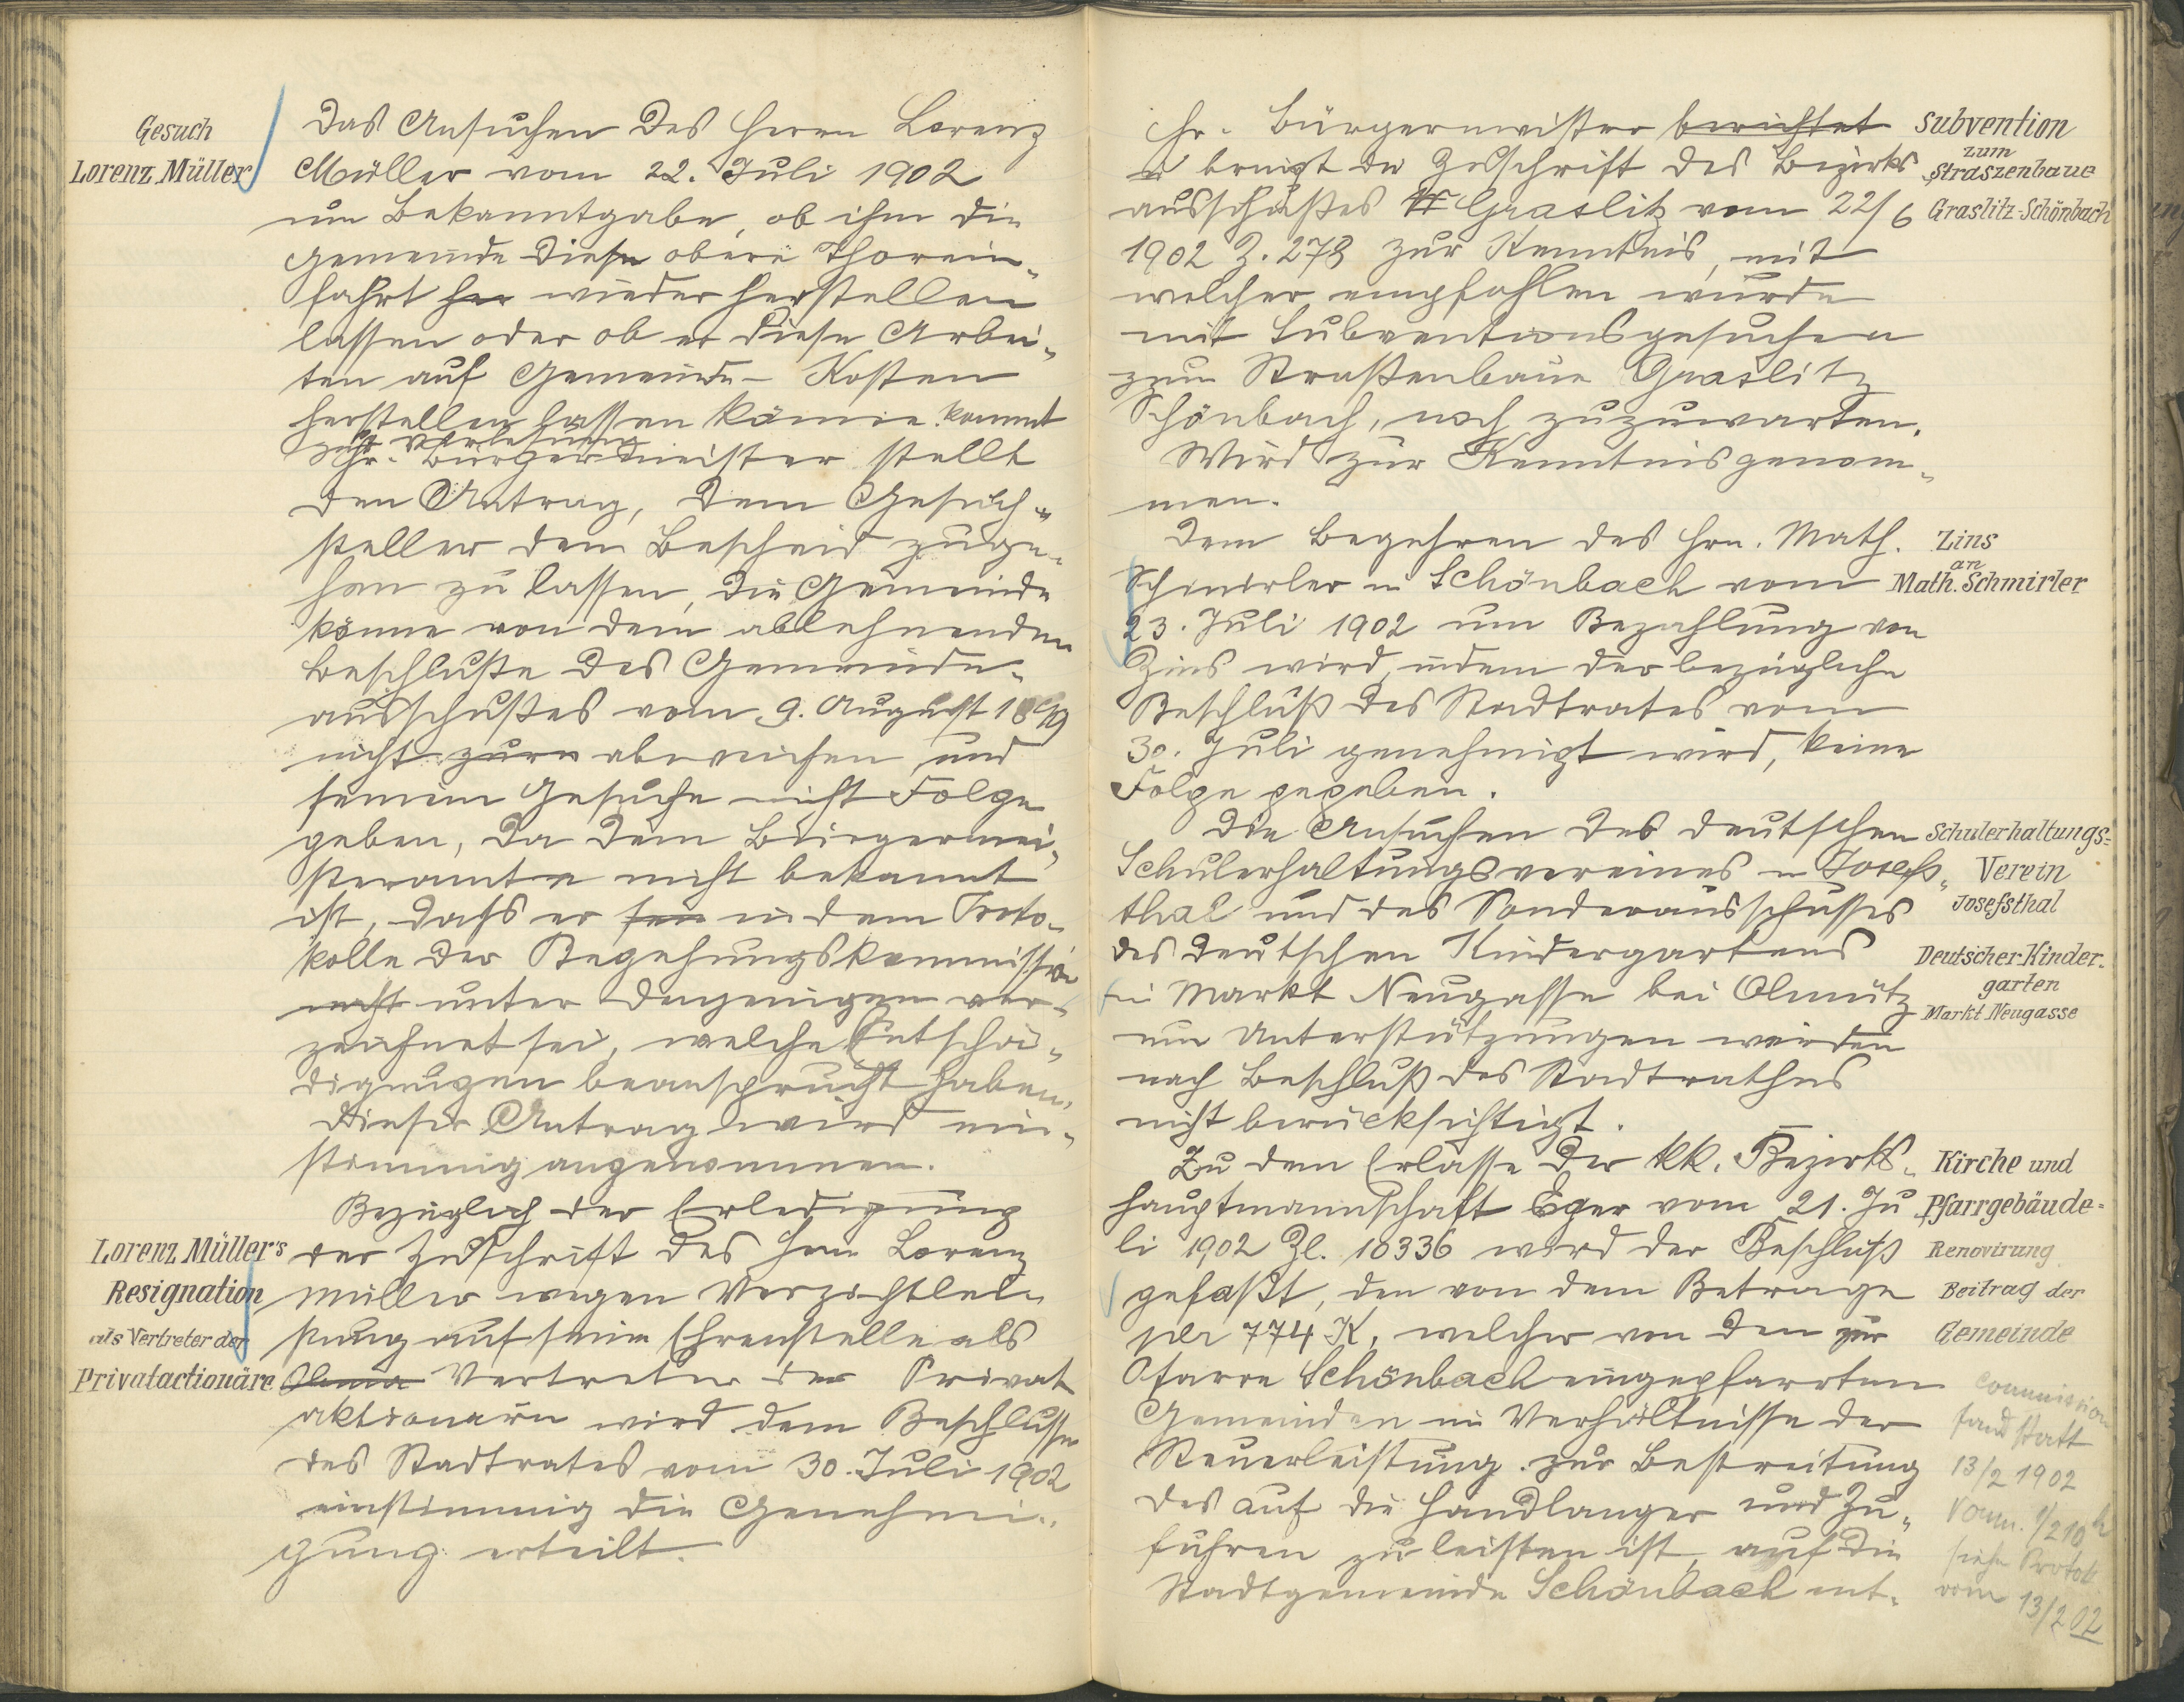 Gesuch
Lorenz Müller
Das Ansuchen des Herrn Lorenz
Müller vom 22. Juli 1902
um Bekanntgabe, ob ihm die
Gemeinde diese obere Thorein„
fahrt her wieder herstellen
lassen oder ob er diese Arbei„
ten auf Gemeinde- Kosten
herstellen lassen könne. kommt
zur Verlesung
Hr. Bürgermeister stellt
den Antrag, dem Gesuch„
steller den Bescheid zuge„
hen zu lassen, die Gemeinde
könne von dem ablehnenden
Beschluße des Gemeinde„
ausschußes vom 9. August 1899
nicht abweichen und
seinem Gesuche nicht Folge
geben, da dem Bürgermei„
steramte nicht bekannt
ist, dass er sei in dem Proto„
kolle der Begehungskommission
nicht unter denjenigen ver„
zeichnet sei, welche Entschä„
digungen beansprucht haben.
Dieser Antrag wird ein„
stimmig angenommen.
Lorenz Müller's
Resignation
als Vertreter der
Privatactionäre
Bezüglich der Erledigung
der Zuschrift des Herrn Lorenz
Müller wegen Verzichtlei„
stung auf seine Ehrenstelle als
Vertreter der Privat
aktionären wird dem Beschlusse
des Stadtrates vom 30. Juli 1902
einstimmig die Genehmi„
gung erteilt.
Hr. Bürgermeister berichtet
bringt die Zuschrift des Bezirks
ausschußes Graslitz vom 22/6
1902 Z. 278 zur Kenntnis, mit
welcher empfohlen wurde
mit Subventionsgesuchen
zum Straßenbaue Graslitz
Schönbach, noch zuzuwarten.
Wird zur Kenntnis genom„
men.
Subvention
zum
Straszenbaue
Graslitz-Schönbach
Dem Begehren des Hrn. Math.
Schmirler in Schönbach vom
23. Juli 1902 um Bezahlung von
Zins wird, indem der bezügliche
Beschluß des Stadtrates vom
30. Juli genehmigt wird, keine
Folge gegeben.
Zins
an
Math. Schmirler
Die Ansuchen des deutschen
Schulerhaltungsvereines in Josefs„
thal und des Sonderausschusses
des deutschen Kindergartens
in Markt Neugasse bei Olmütz
um Unterstützungen werden
nach Beschluß des Stadtrathes
nicht berücksichtigt.
Schulerhaltungs=
Verein
Josefsthal
Deutscher-Kinder-
garten
Markt Neugasse
Zu dem Erlasse der kk. Bezirks„
hauptmannschaft Eger vom 21. Ju
li 1902 Zl. 10336 wird der Beschluß
gefaßt, den von dem Betrage
per 774 K, welcher von den zur
Pfarre Schönbach eingepfarrten
Gemeinden im Verhältnisse der
Steuerleistung zur Bestreitung
des auf die Handlanger und Zu„
fuhren zu leisten ist, auf die
Stadtgemeinde Schönbach ent„
Kirche und
Pfarrgebäude=
Renovirung
Beitrag der
Gemeinde
Commission
fand statt
13/2 1902
Vorm. 1/2 10 h
siehe Protok
vom 13/2 02